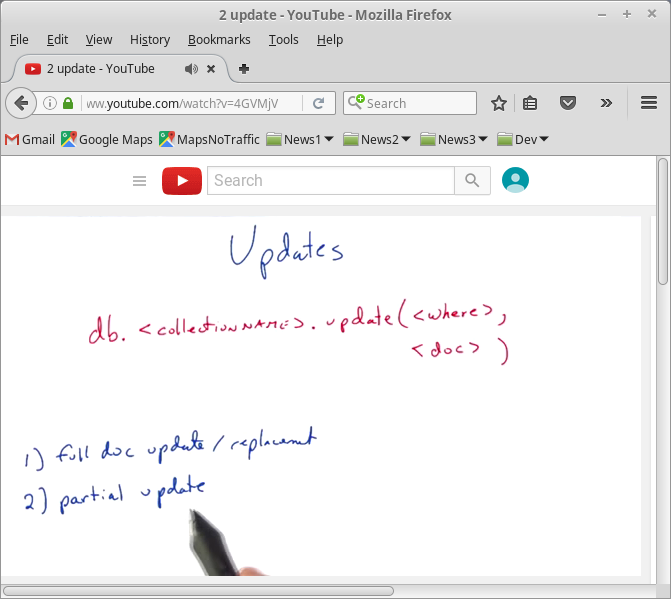 2 update - YouTube - Mozilla Firefox
File Edit View History Bookmarks Tools Help
2 update - YouTube
ww.youtube.com/watch?v=4GVMjV Search
Gmail Google Maps MapsNoTraffic News1 News2 News3 Dev
Search
Updates
db. <collectionNAME>. update(<where>,
<doc> )
1) full doc update/replacement
2) partial update